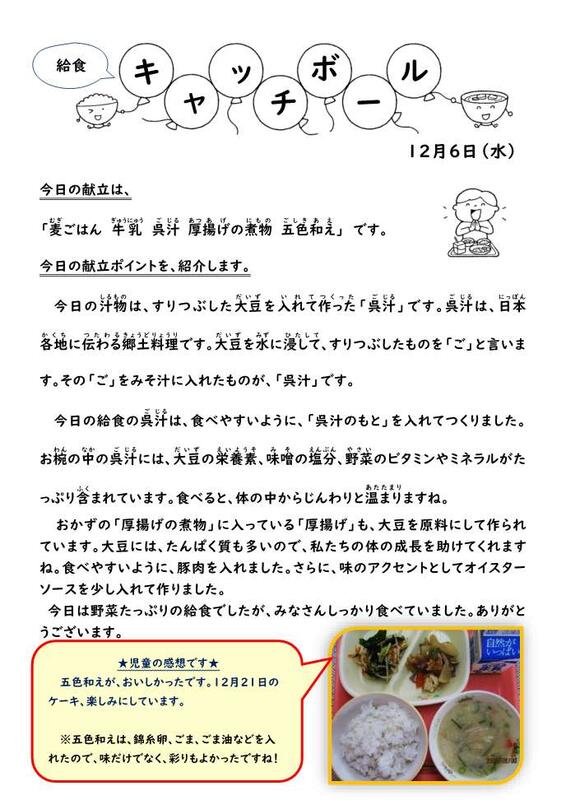 給食
キャッチボール
12月6日（水）
今日の献立は、
「麦ごはん　牛乳　呉汁　厚揚げの煮物　五色和え」です。
今日の献立ポイントを、紹介します。
今日の汁物は、すりつぶした大豆を入れて作った「呉汁」です。呉汁は、日本
各地に伝わる郷土料理です。大豆を水に浸して、すりつぶしたものを「ご」と言いま
す。その「ご」をみそ汁に入れたものが、「呉汁」です。
今日の給食の呉汁は、食べやすいように、「呉汁のもと」を入れてつくりました。
お椀の中の呉汁には、大豆の栄養素、味噌の塩分、野菜のビタミンやミネラルがた
っぷり含まれています。食べると、体の中からじんわりと温まりますね。
おかずの「厚揚げの煮物」に入っている「厚揚げ」も、大豆を原料にして作られ
ています。大豆には、たんぱく質も多いので、私たちの体の成長を助けてくれます
ね。食べやすいように、豚肉を入れました。さらに、味のアクセントとしてオイスター
ソースを少し入れて作りました。
今日は野菜たっぷりの給食でしたが、みなさんしっかり食べていました。ありがと
うございます。
★児童の感想です★
五色和えが、おいしかったです。12月21日の
ケーキ、楽しみにしています。
※五色和えは、錦糸卵、ごま、ごま油などを入
れたので、味だけでなく、彩りもよかったですね！
自然が
いっぱい